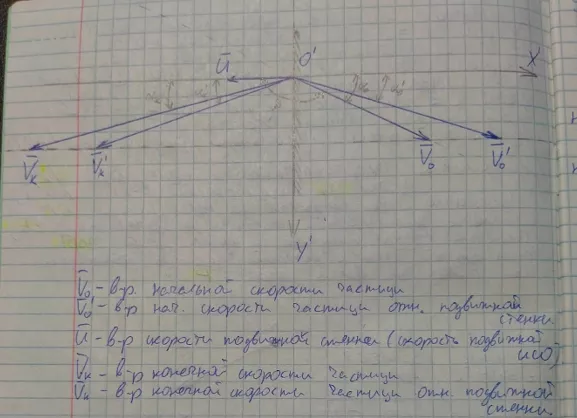 Ū O' X
V̄к V̄к' V̄₀ V̄₀'
Y'
V̄₀ - в-р начальной скорости частицы
V̄₀' - в-р нач. скорости частицы отн. подвижной
стенки.
Ū - в-р скорости подвижной стенки (скорость подвижной
ИСО)
V̄к - в-р конечной скорости частицы
V̄к - в-р конечной скорости частицы отн. подвижной
стенки